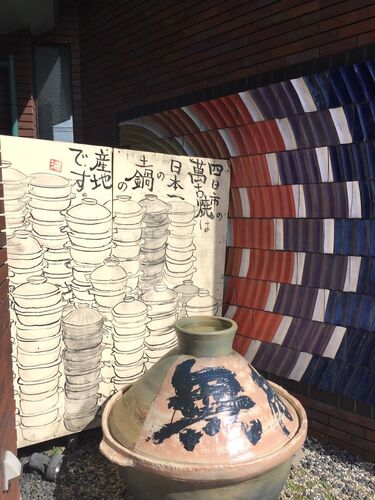 四日市の
萬古焼は
日本一
の
土鍋の
産地
です
無